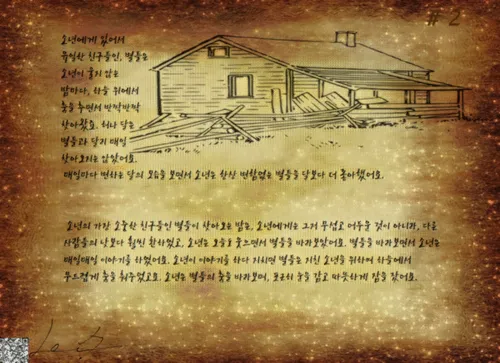 # 2
소년에게 있어서
유일한 친구들인, 별들은
소년이 울지 않는
밤마다, 하늘 위에서
춤을 추면서 반짝반짝
찾아왔죠. 허나 달은
별들과 달리 매일
찾아오지는 않았어요.
매일마다 변하는 달의 모습을 보면서 소년은 항상 변함없는 별들을 달보다 더 좋아했어요.
소년의 가장 소중한 친구들인 별들이 찾아오는 밤은, 소년에게는 그저 무섭고 어두운 것이 아니라, 다른
사람들의 낮보다 훨씬 환하였고, 소년은 오늘도 웃으면서 별들을 바라보았어요. 별들을 바라보면서 소년은
매일매일 이야기를 하였어요. 소년이 이야기를 하다 지치면 별들은 지친 소년을 위하여 하늘에서
부드럽게 춤을 춰주었고요. 소년은 별들의 춤을 바라보며, 포근히 눈을 감고 따뜻하게 잠을 잤어요.